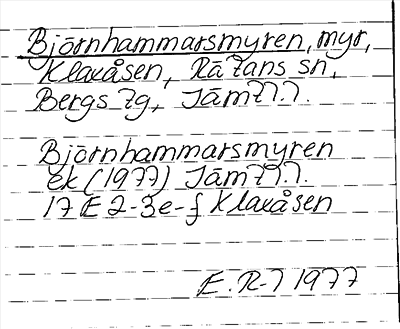 Björnhammarsmyren, myr,
Klaxåsen, Rätans sn,
Bergs tg, Jämtl.
Björnhammarsmyren
ek (1977) Jämtl.
17 E 2-3e-f Klaxåsen
E. R-7 1977